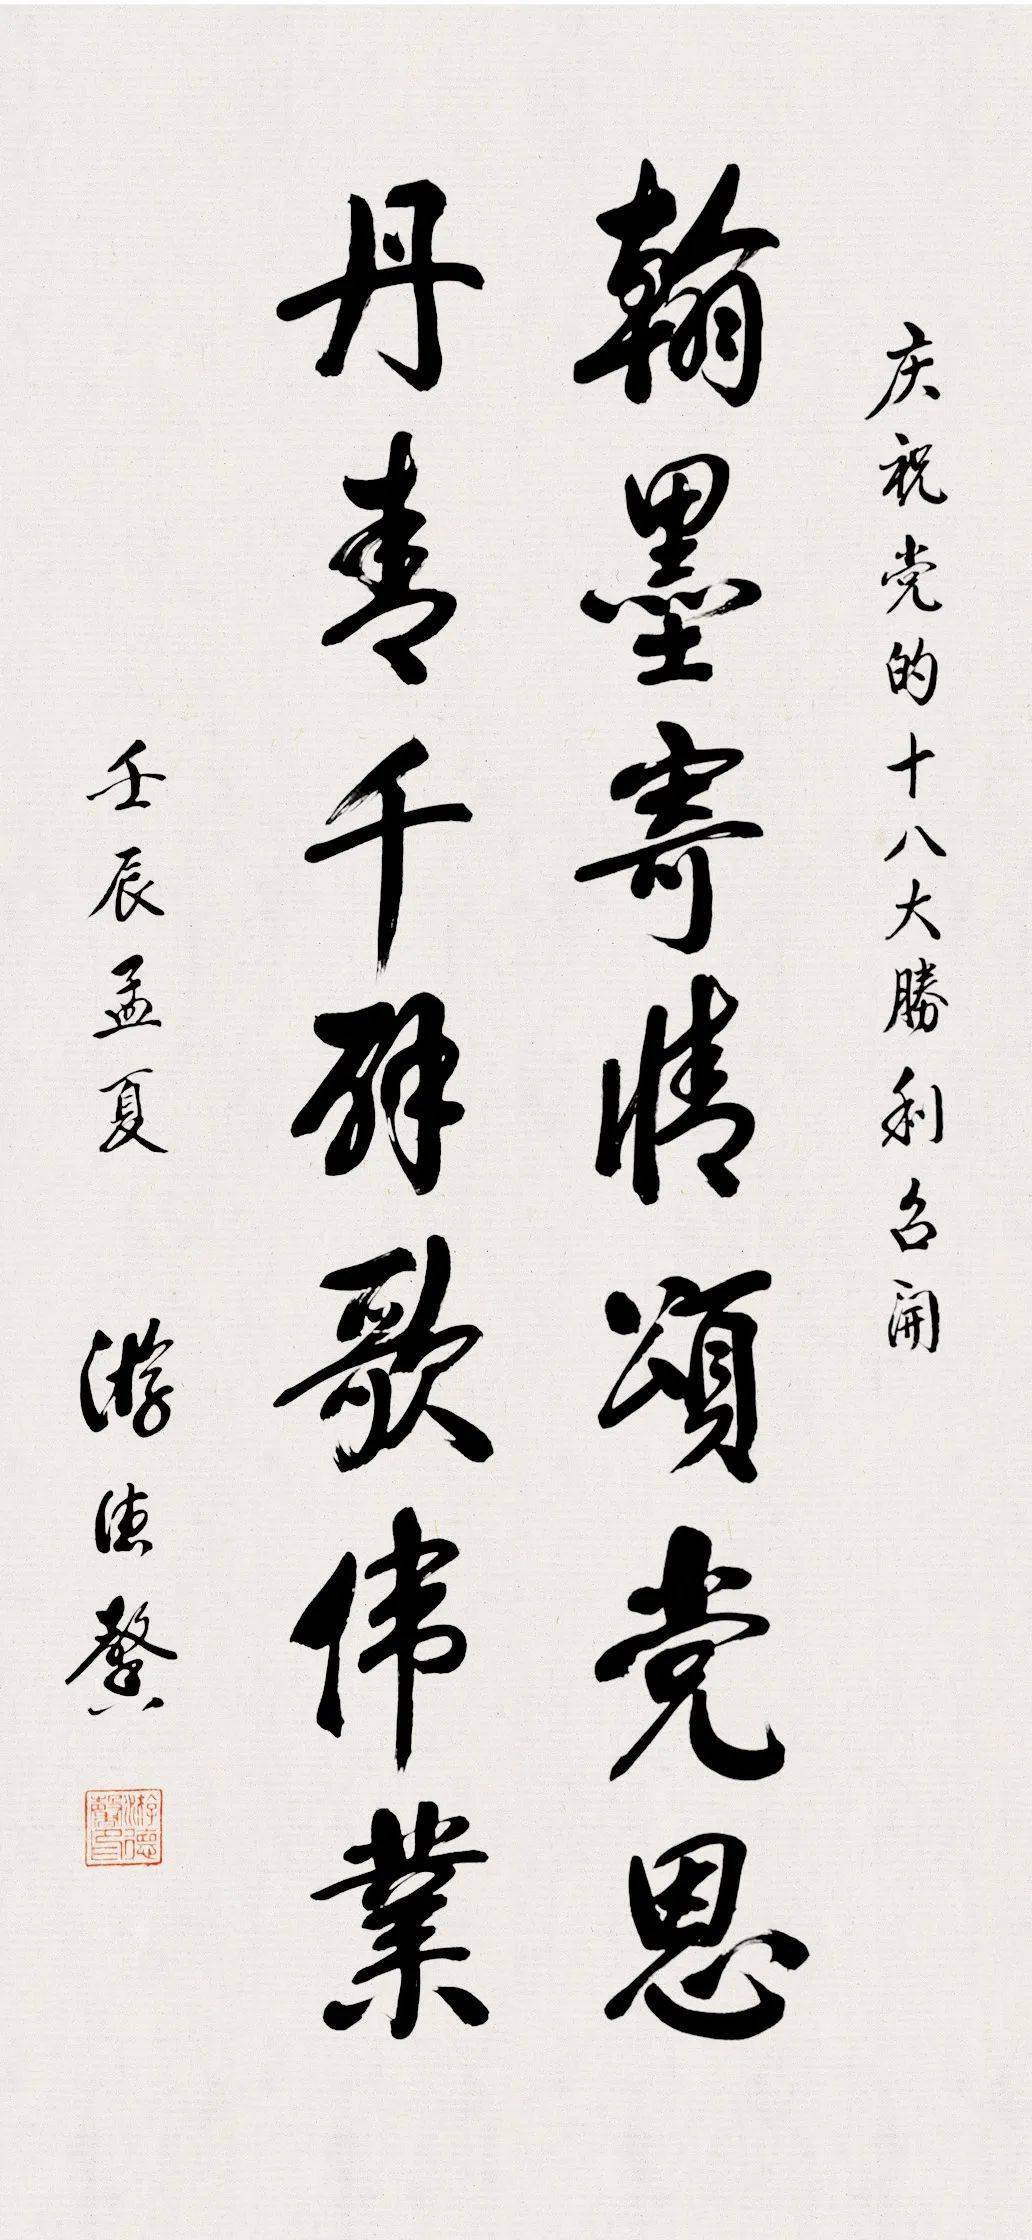 庆祝党的十八大勝利召開
翰墨寄情頌党恩
丹青千群歌伟業
壬辰孟夏 游德馨
游德馨印